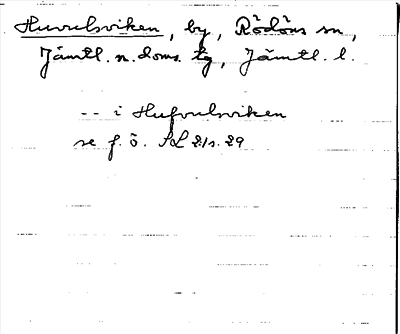 Huvulsviken, by, Rödöns sn,
Jämtl. n. doms. tg, Jämtl. l.
-- i Hufvulsviken
se f. ö. SL 21 s. 29